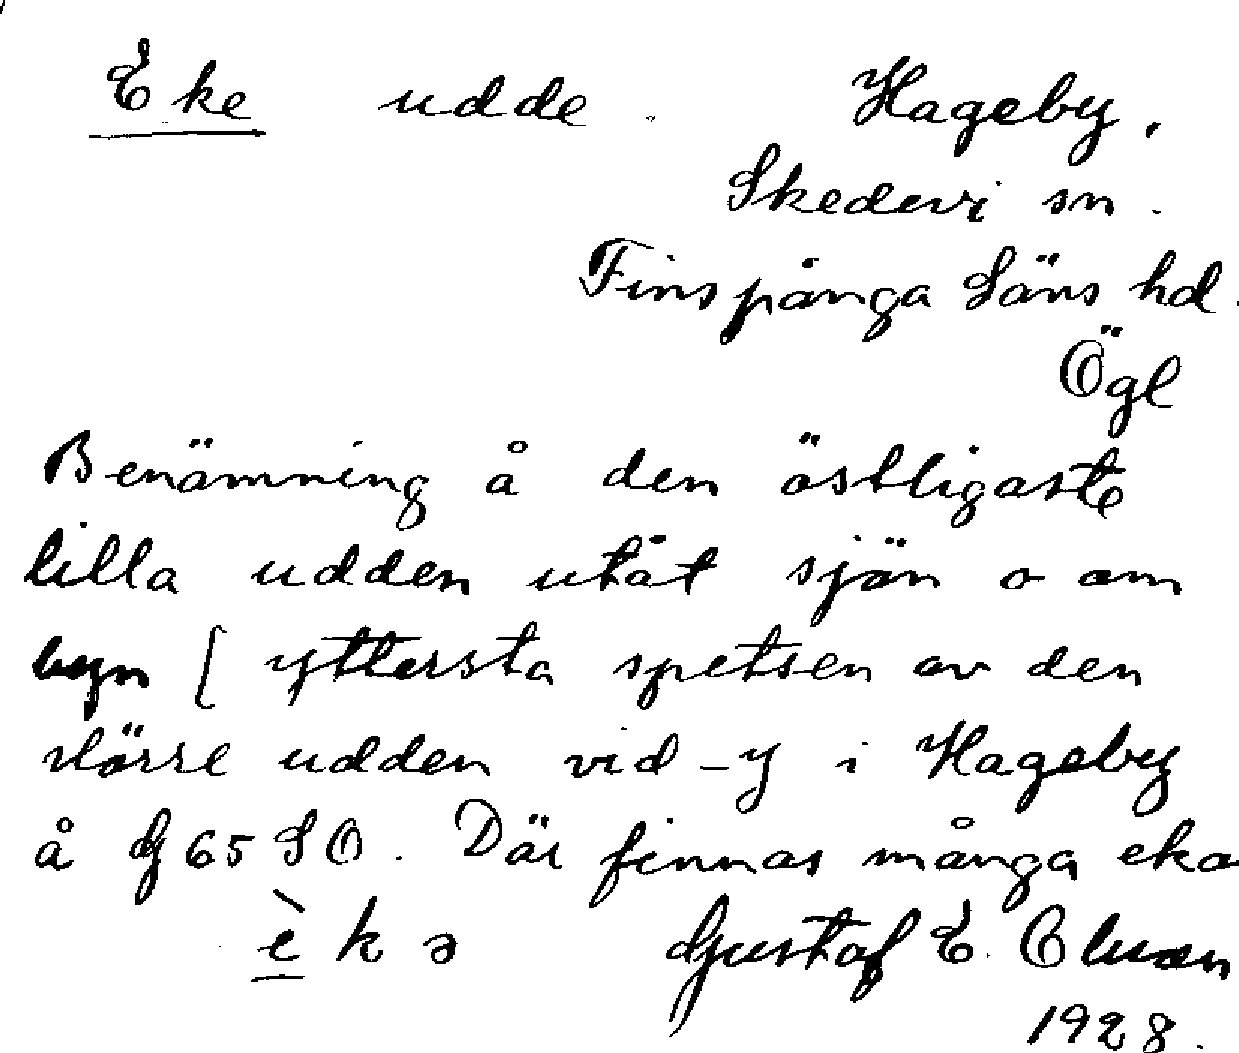 Eke udde. Hageby.
Skedevi sn.
Finspånga läns hd.
Ögl
Benämning å den östligaste
lilla udden utåt sjön o om
byn [ yttersta spetsen av den
större udden vid -y i Hageby
å G 65 SO. Där finnas många eka
è k ə Gustaf E.
1928.